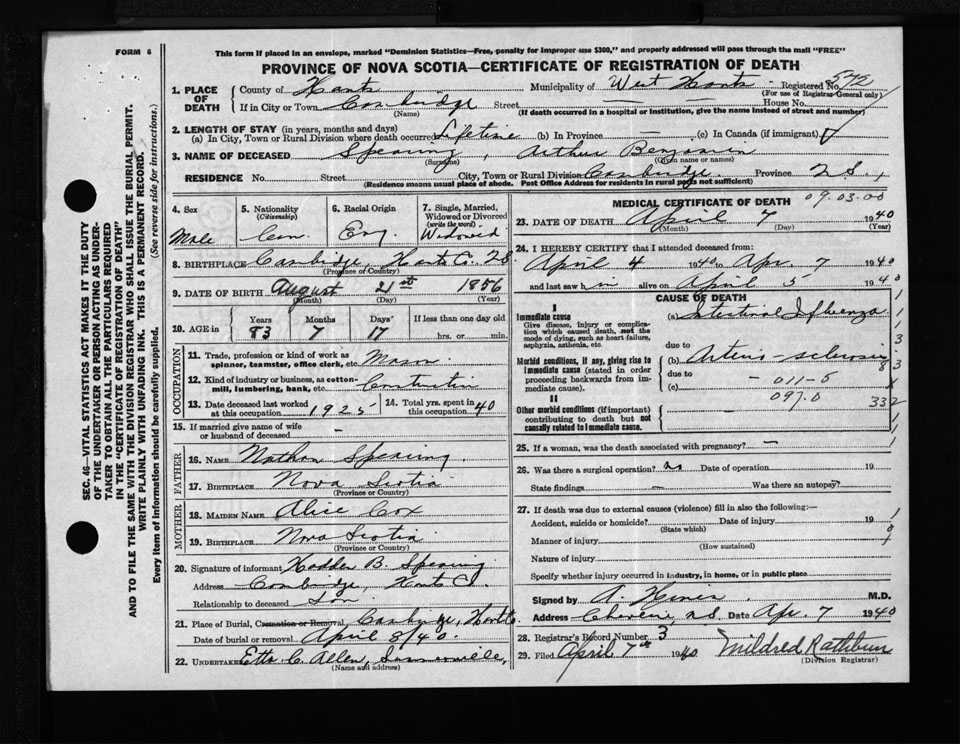 FORM 6
This form if placed in an envelope, marked "Dominion Statistics—Free, penalty for improper use $300," and properly addressed will pass through the mail "FREE"
PROVINCE OF NOVA SCOTIA—CERTIFICATE OF REGISTRATION OF DEATH
SEC. 46—VITAL STATISTICS ACT MAKES IT THE DUTY
OF THE UNDERTAKER OR PERSON ACTING AS UNDER-
TAKER TO OBTAIN ALL THE PARTICULARS REQUIRED
IN THE "CERTIFICATE OF REGISTRATION OF DEATH"
AND TO FILE THE SAME WITH THE DIVISION REGISTRAR WHO SHALL ISSUE THE BURIAL PERMIT.
WRITE PLAINLY WITH UNFADING INK. THIS IS A PERMANENT RECORD.
Every item of information should be carefully supplied. (See reverse side for instructions.)
1. PLACE OF DEATH
County of Hants Municipality of West Hants Registered No.
(For use of Registrar-General only)
If in City or Town Cambridge Street House No.
(Name) (If death occurred in a hospital or institution, give the name instead of street and number)
2. LENGTH OF STAY (in years, months and days)
(a) In City, Town or Rural Division where death occurred Lifetime (b) In Province — (c) In Canada (if immigrant)
3. NAME OF DECEASED Spearing, Arthur Benjamin
(Surname) (Given name or names)
RESIDENCE No. Street City, Town or Rural Division Cambridge Province N.S.,
(Residence means usual place of abode. Post Office Address for residents in rural parts not sufficient)
4. Sex
Male
5. Nationality
(Citizenship)
Can.
6. Racial Origin
Eng
7. Single, Married,
Widowed or Divorced
(write the word)
Widowed
8. BIRTHPLACE Cambridge, Hants Co. N.S.
(Province or Country)
9. DATE OF BIRTH August 21st 1856
(Month) (Day) (Year)
10. AGE in Years Months Days If less than one day old
83 7 17 hrs. or min.
OCCUPATION
11. Trade, profession or kind of work as
spinner, teamster, office clerk, etc. Mason
12. Kind of industry or business, as cotton-
mill, lumbering, bank, etc. Construction
13. Date deceased last worked
at this occupation 1925
14. Total yrs. spent in
this occupation 40
15. If married give name of wife
or husband of deceased —
FATHER
16. NAME Nathan Spearing
17. BIRTHPLACE Nova Scotia
(Province or Country)
MOTHER
18. MAIDEN NAME Alice Cox
19. BIRTHPLACE Nova Scotia
(Province or Country)
20. Signature of informant B. Spearing
Address Cambridge Hants Co.
Relationship to deceased Son
21. Place of Burial, Cremation or Removal, Cambridge, Hants
Date of burial or removal April 8/40.
22. UNDERTAKER Etta C. Allen, Summerville,
(Name and address)
MEDICAL CERTIFICATE OF DEATH
09.03.00
23. DATE OF DEATH April 7 1940
(Month) (Day) (Year)
24. I HEREBY CERTIFY that I attended deceased from:
April 4 1940 to Apr. 7 1940
and last saw him alive on April 5 1940
CAUSE OF DEATH
I
Immediate cause
Give disease, injury or complica-
tion which caused death, not the
mode of dying, such as heart failure,
asphyxia, asthenia, etc.
(a) Intestinal Influenza
due to
Morbid conditions, if any, giving rise to
immediate cause (stated in order
proceeding backwards from im-
mediate cause).
(b) Arterio-sclerosis
due to
(c) - 011-5
097.0 332
II
Other morbid conditions (if important)
contributing to death but not
causally related to immediate cause.
25. If a woman, was the death associated with pregnancy? —
26. Was there a surgical operation? no Date of operation 19
State findings — Was there an autopsy?
27. If death was due to external causes (violence) fill in also the following:—
Accident, suicide or homicide? Date of injury 19
(State which)
Manner of injury
(How sustained)
Nature of injury
Specify whether injury occurred in industry, in home, or in public place
Signed by A. M.D.
Address N.S. Date Apr. 7 1940
28. Registrar's Record Number 3
29. Filed April 7th 1940 Mildred Rathbun
(Division Registrar)